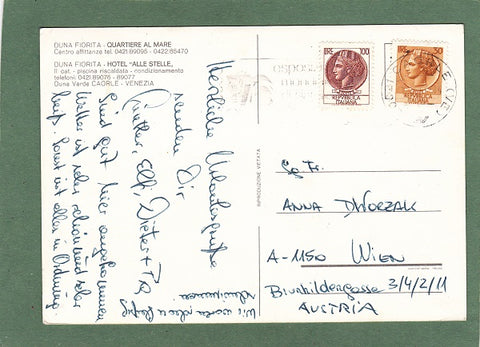 DUNA FIORITA - QUARTIERE AL MARE
Centro affittanze tel. 0421-89095 - 0422-85470
DUNA FIORITA - HOTEL "ALLE STELLE",
II cat. - piscina riscaldata - condizionamento
telefoni 0421-89076 - 89077
Duna Verde CAORLE - VENEZIA
Herzliche Urlaubsgrüße
senden Dir
Elfi, Dieter +
Sind gut hier angekommen
Wetter ist sehr schön und sehr
heiß. Sonst ist alles in Ordnung.
Wir waren schon
schwimmen
RIPRODUZIONE VIETATA
LIRE 100
REPUBBLICA
ITALIANA
50
Sg Fr.
ANNA DWORZAK
A-1150 WIEN
Brunhildengasse 3/4/2/11
AUSTRIA